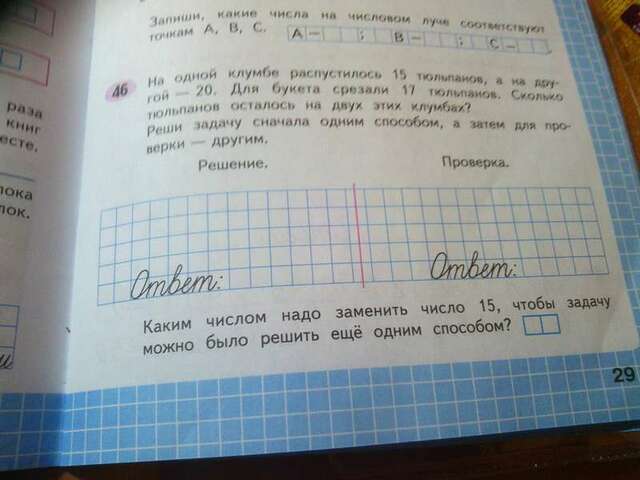 Запиши, какие числа на числовом луче соответствуют
точкам А, В, С. А – ; В – ; С – .
раза
книг
есте.
46 На одной клумбе распустилось 15 тюльпанов, а на дру-
гой — 20. Для букета срезали 17 тюльпанов. Сколько
тюльпанов осталось на двух этих клумбах?
Реши задачу сначала одним способом, а затем для про-
верки — другим.
Решение. Проверка.
лока
лок.
Ответ: Ответ:
Каким числом надо заменить число 15, чтобы задачу
можно было решить ещё одним способом?
29